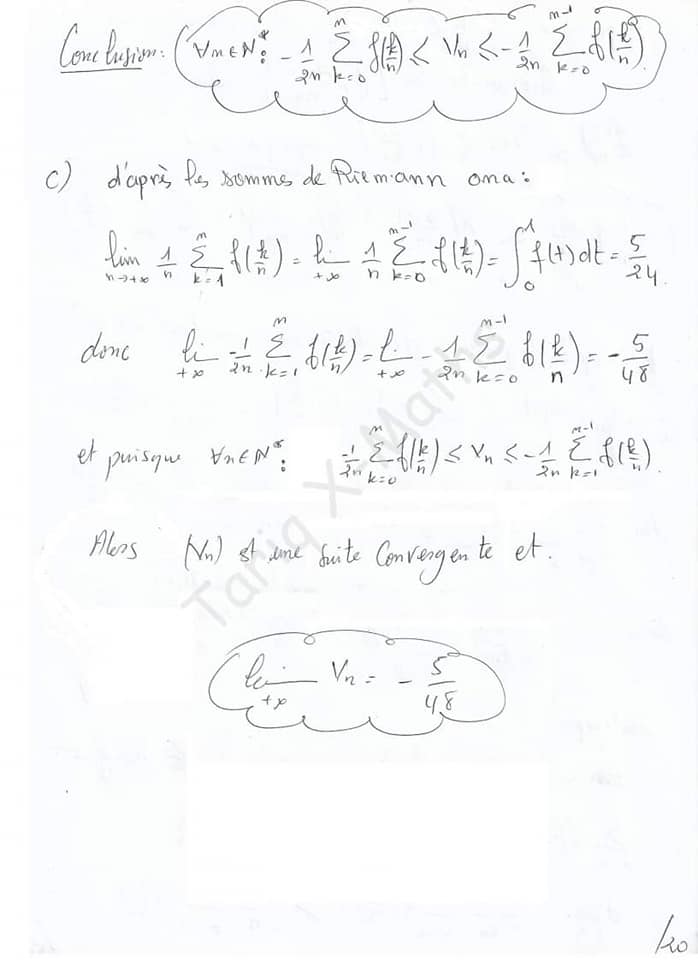 Conclusion: ∀n∈ℕ*: -1/2n ∑_{k=0}^{n} f(k/n) ≤ Vn ≤ -1/2n ∑_{k=0}^{n-1} f(k/n)
c) d'après les sommes de Riemann ona:
lim_{n→+∞} 1/n ∑_{k=1}^{n} f(k/n) = lim_{+∞} 1/n ∑_{k=0}^{n-1} f(k/n) = ∫_0^1 f(t)dt = 5/24.
donc lim_{+∞} -1/2n ∑_{k=1}^{n} f(k/n) = lim_{+∞} -1/2n ∑_{k=0}^{n-1} f(k/n) = -5/48
et puisque ∀n∈ℕ*: -1/2n ∑_{k=0}^{n} f(k/n) ≤ Vn ≤ -1/2n ∑_{k=1}^{n-1} f(k/n).
Alors (Vn) est une suite Convergente et.
lim_{+∞} Vn = -5/48
Tariq X-Maths
/20